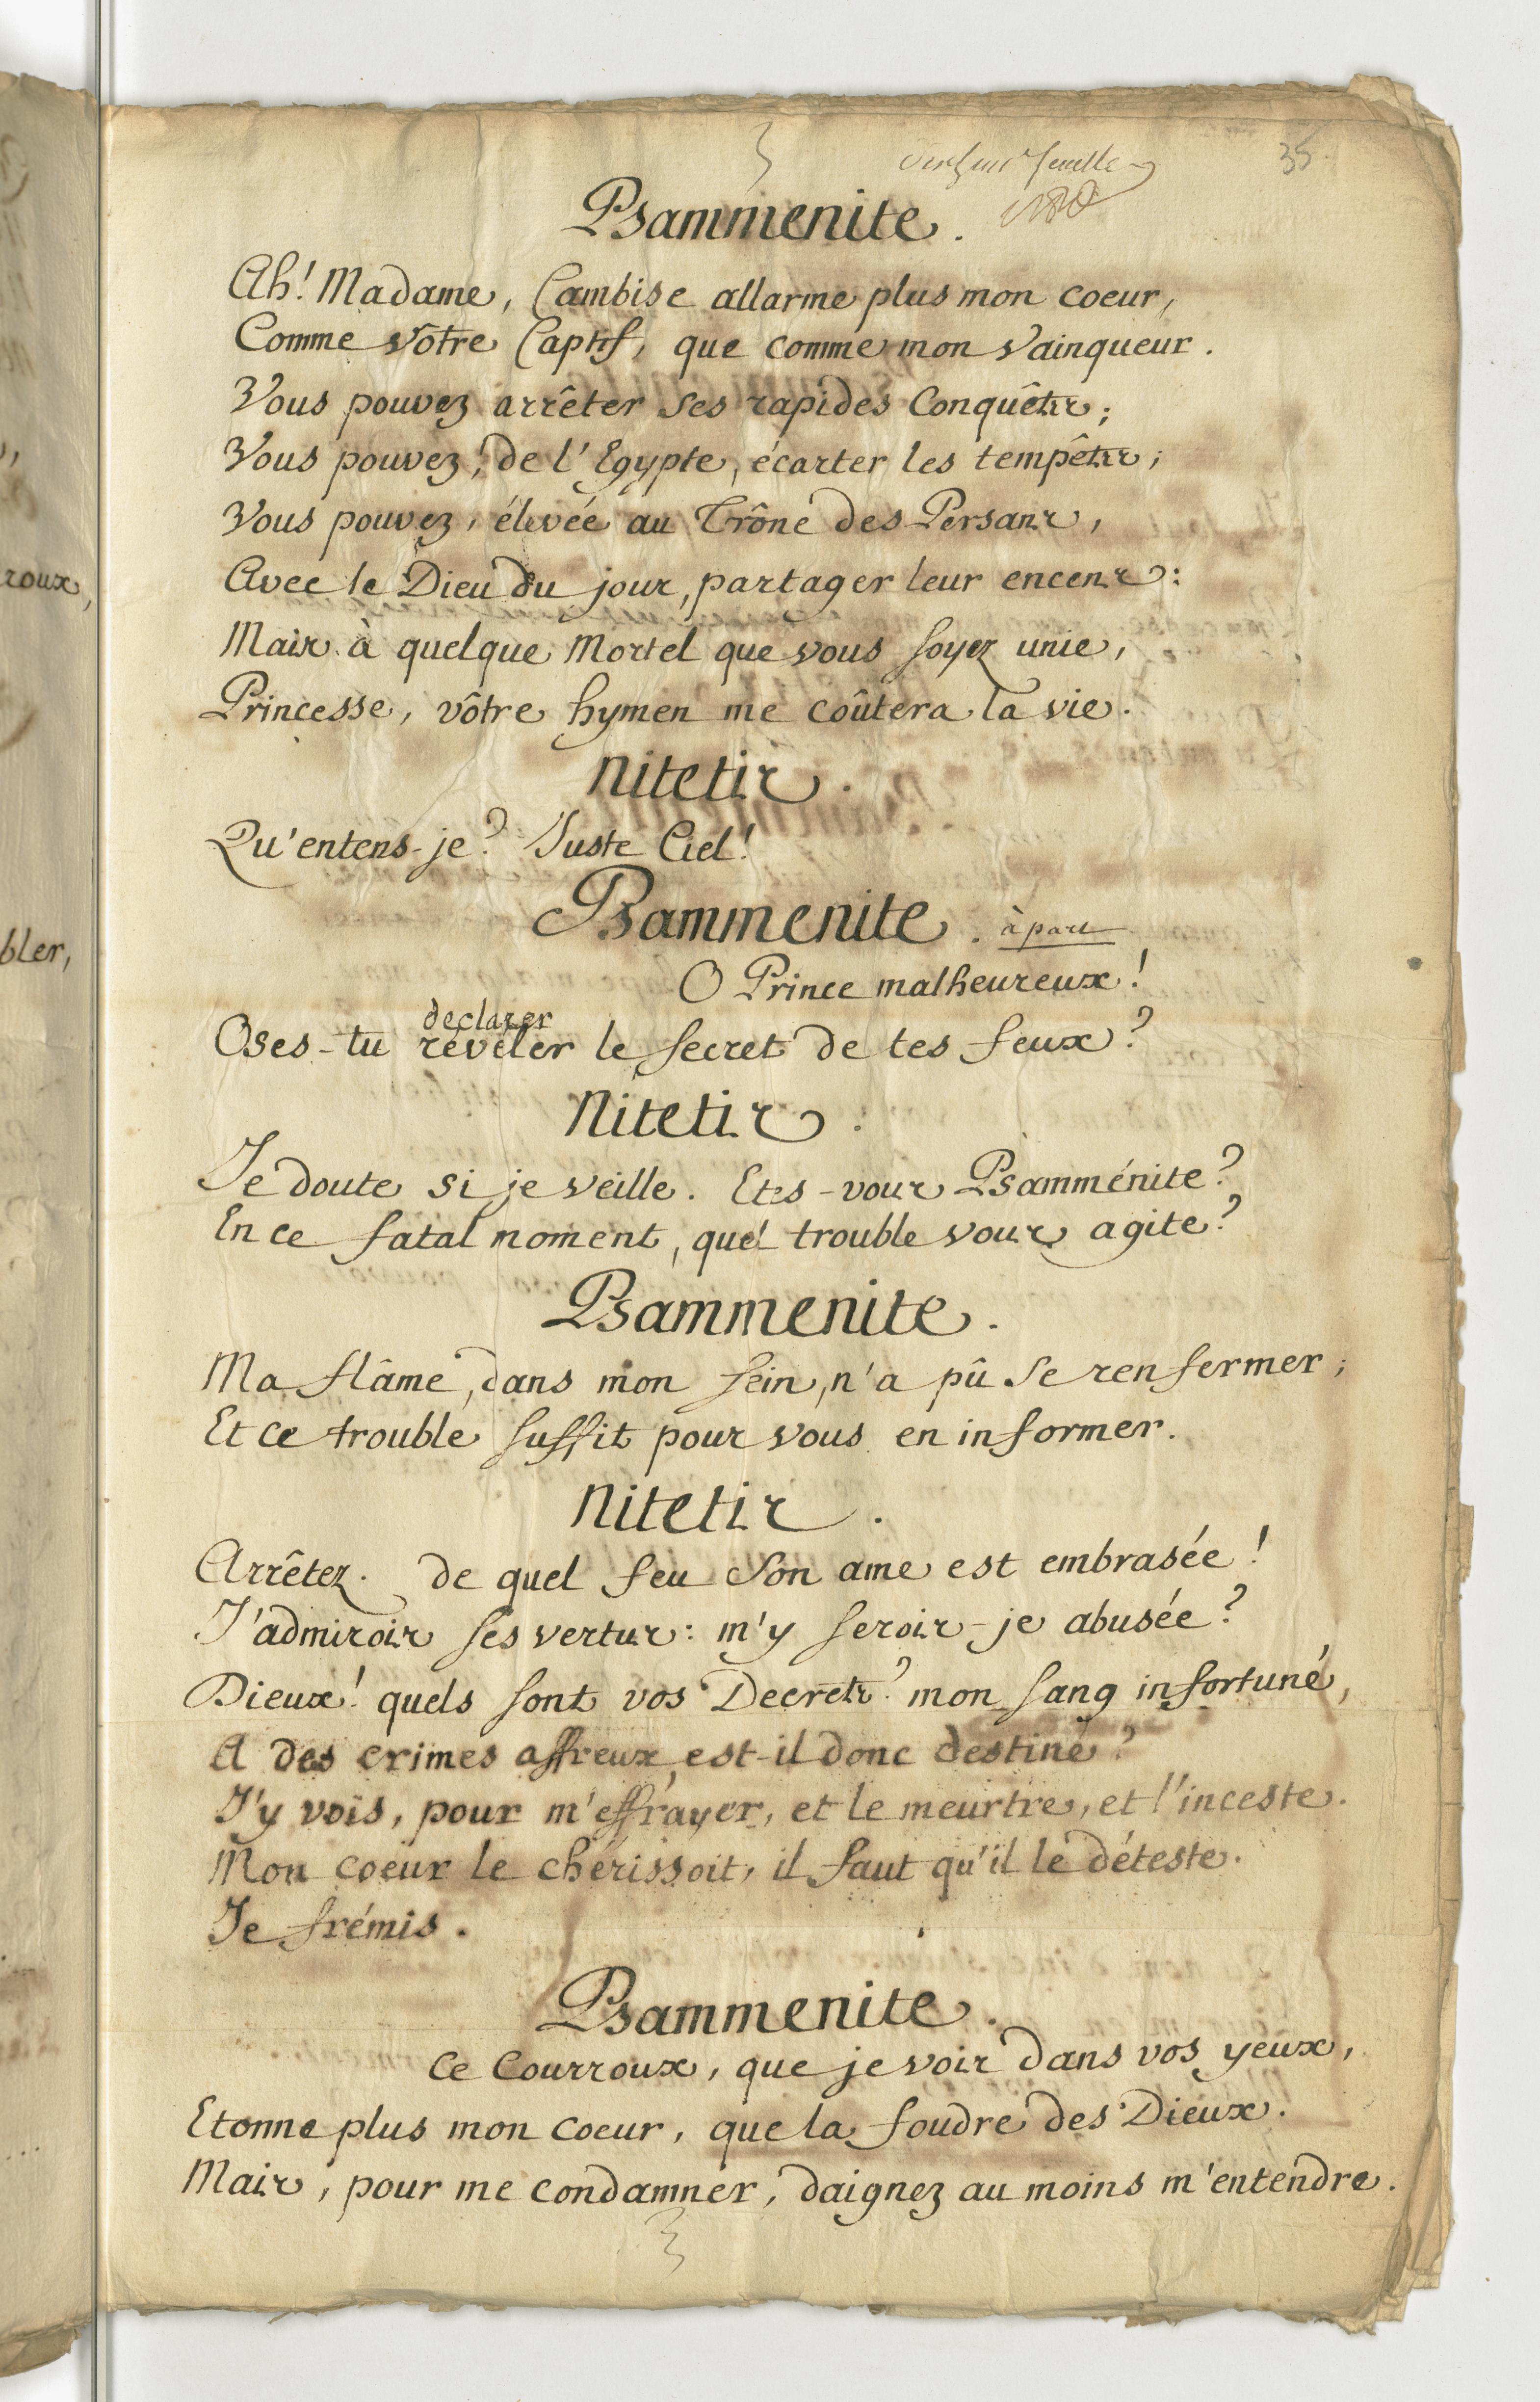 35
Psammenite.
Ah! Madame, Cambise allarme plus mon coeur,
Comme vôtre Captif, que comme mon Vainqueur.
Vous pouvez arrêter ses rapides Conquêtes;
Vous pouvez, de l'Egypte, écarter les tempêtes;
Vous pouvez, élevée au Trône des Persans,
Avec le Dieu du jour, partager leur encens:
Mais à quelque Mortel que vous soyez unie,
Princesse, vôtre hymen me coûtera la vie.
Nitetis.
Qu'entens-je? Juste Ciel!
Psammenite. à part
O Prince malheureux!
declarer
Oses-tu révéler le secret de tes feux?
Nitetis.
Je doute si je veille. Etes-vous Psamménite?
En ce fatal moment, quel trouble vous agite?
Psammenite.
Ma flâme, dans mon sein, n'a pû se renfermer;
Et ce trouble suffit pour vous en informer.
Nitetis.
Arrêtez. de quel feu son ame est embrasée!
J'admirois ses vertus: m'y serois-je abusée?
Dieux! quels sont vos Decrets? mon sang infortuné,
A des crimes affreux, est-il donc destiné?
J'y vois, pour m'effrayer, et le meurtre, et l'inceste.
Mon coeur le chérissoit, il faut qu'il le déteste.
Je frémis.
Psammenite.
Ce Courroux, que je vois dans vos yeux,
Etonne plus mon coeur, que la foudre des Dieux.
Mais, pour me condamner, daignez au moins m'entendre.
roux,
bler,